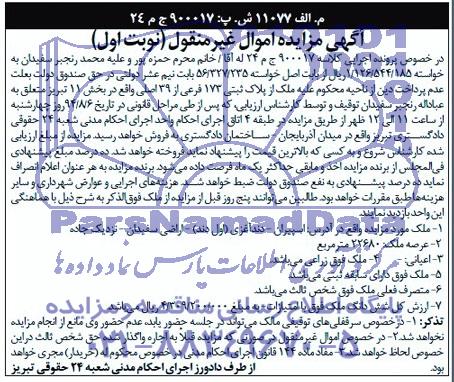 م. الف ۱۱۰۷۷ ش. پ: ۹۰۰۰۱۷ ج م ۲۴
آگهی مزایده اموال غیر منقول (نوبت اول)
در خصوص پرونده اجرایی کلاسه ۹۰۰۰۱۷ ج م ۲۴ له آقا/ خانم محرم حمزه پور و علیه محمد رنجبر سفیدان به
خواسته ۱/۱۲۶/۵۴۴/۱۸۵ ریال از بابت اصل خواسته ۵۶/۳۲۷/۲۳۵ بابت نیم عشر دولتی در حق صندوق دولت بعلت
عدم پرداخت دین از ناحیه محکوم علیه ملک از پلاک ثبتی ۱۷۳ فرعی از ۳۹ اصلی واقع در بخش ۱۱ تبریز متعلق به
عباداله رنجبر سفیدان توقیف و توسط کارشناس ارزیابی، که پس از طی مراحل قانونی در تاریخ ۹۴/۸/۶ روز چهارشنبه
از ساعت ۱۱ الی ۱۲ ظهر از طریق مزایده در طبقه ۴ اتاق اجرای احکام واحد اجرای احکام مدنی شعبه ۲۴ حقوقی
دادگستری تبریز واقع در میدان آذربایجان - ساختمان دادگستری به فروش خواهد رسید. مزایده از مبلغ ارزیابی
شده کارشناس شروع و به کسی که بالاترین قیمت را پیشنهاد نماید فروخته خواهد شد. ده درصد مبلغ پیشنهادی
فی‌المجلس از برنده مزایده اخذ و مابقی حداکثر یک ماه فرصت داده می‌شود. برنده مزایده به هر عنوان اعلام انصراف
نماید ده درصد پیشنهادی به نفع صندوق دولت ضبط خواهد شد. هزینه‌های اجرایی و عوارض شهرداری و سایر
هزینه‌ها طبق مقررات خواهد بود. طالبین می‌توانند پنج روز قبل از مزایده از ملک فوق‌الذکر به شرح ذیل با هماهنگی
این واحد بازدید نمایند.
۱- ملک مورد مزایده واقع در آدرس: اسپیران - دندآغزی (اول دند) - اراضی سفیدان - نزدیک جاده
۲- عرصه ملک: ۲۲۶۸۰ مترمربع
۳- اعیانی: - ۴- ملک فوق زراعی می‌باشد.
۵- ملک فوق دارای سابقه ثبتی می‌باشد
۶- متصرف فعلی ملک فوق شخص ثالث می‌باشد.
۷- ارزش کل شش دانگ ملک فوق با امتیازات به مبلغ ریال می‌باشد.
تذکر: ۱- در خصوص سرقفلی‌های توقیفی مالک می‌تواند در جلسه حضور یابد، عدم حضور وی مانع از انجام مزایده
نخواهد شد. ۲- در خصوص اموال غیرمنقول در صورتی که مزایده قبلا به اجاره واگذار شده حق شخص ثالث در این
خصوص لحاظ خواهد شد. ۳- مفاد ماده ۱۴۴ قانون اجرای احکام مدنی در خصوص محکوم له (خریدار) مجری خواهد بود.
از طرف دادورز اجرای احکام مدنی شعبه ۲۴ حقوقی تبریز
ParsNamadData